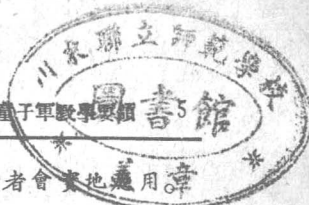 川東聯立師範學校
圖書館
童子軍教學要領 5
者會實地用。
章